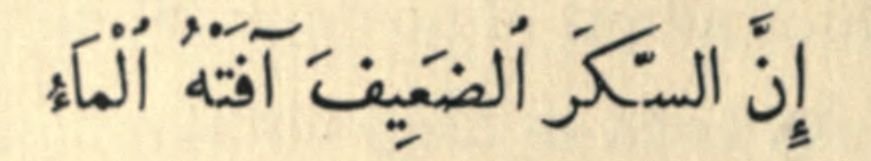 إِنَّ السّكَرَ ٱلضَعِيفَ آفَتْهُ ٱلْمَاءُ